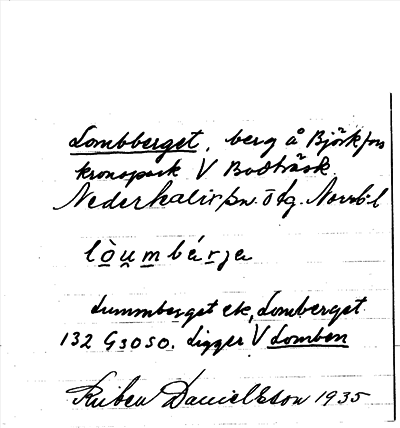 Lombberget, berg å Björkfors
kronopark V Bodträsk.
Nederkalix sn. Norrb. l
lòumbárja
Lummberget ek. Lomberget
132 G3050. Ligger V Lomben
Ruben Danielsson 1935